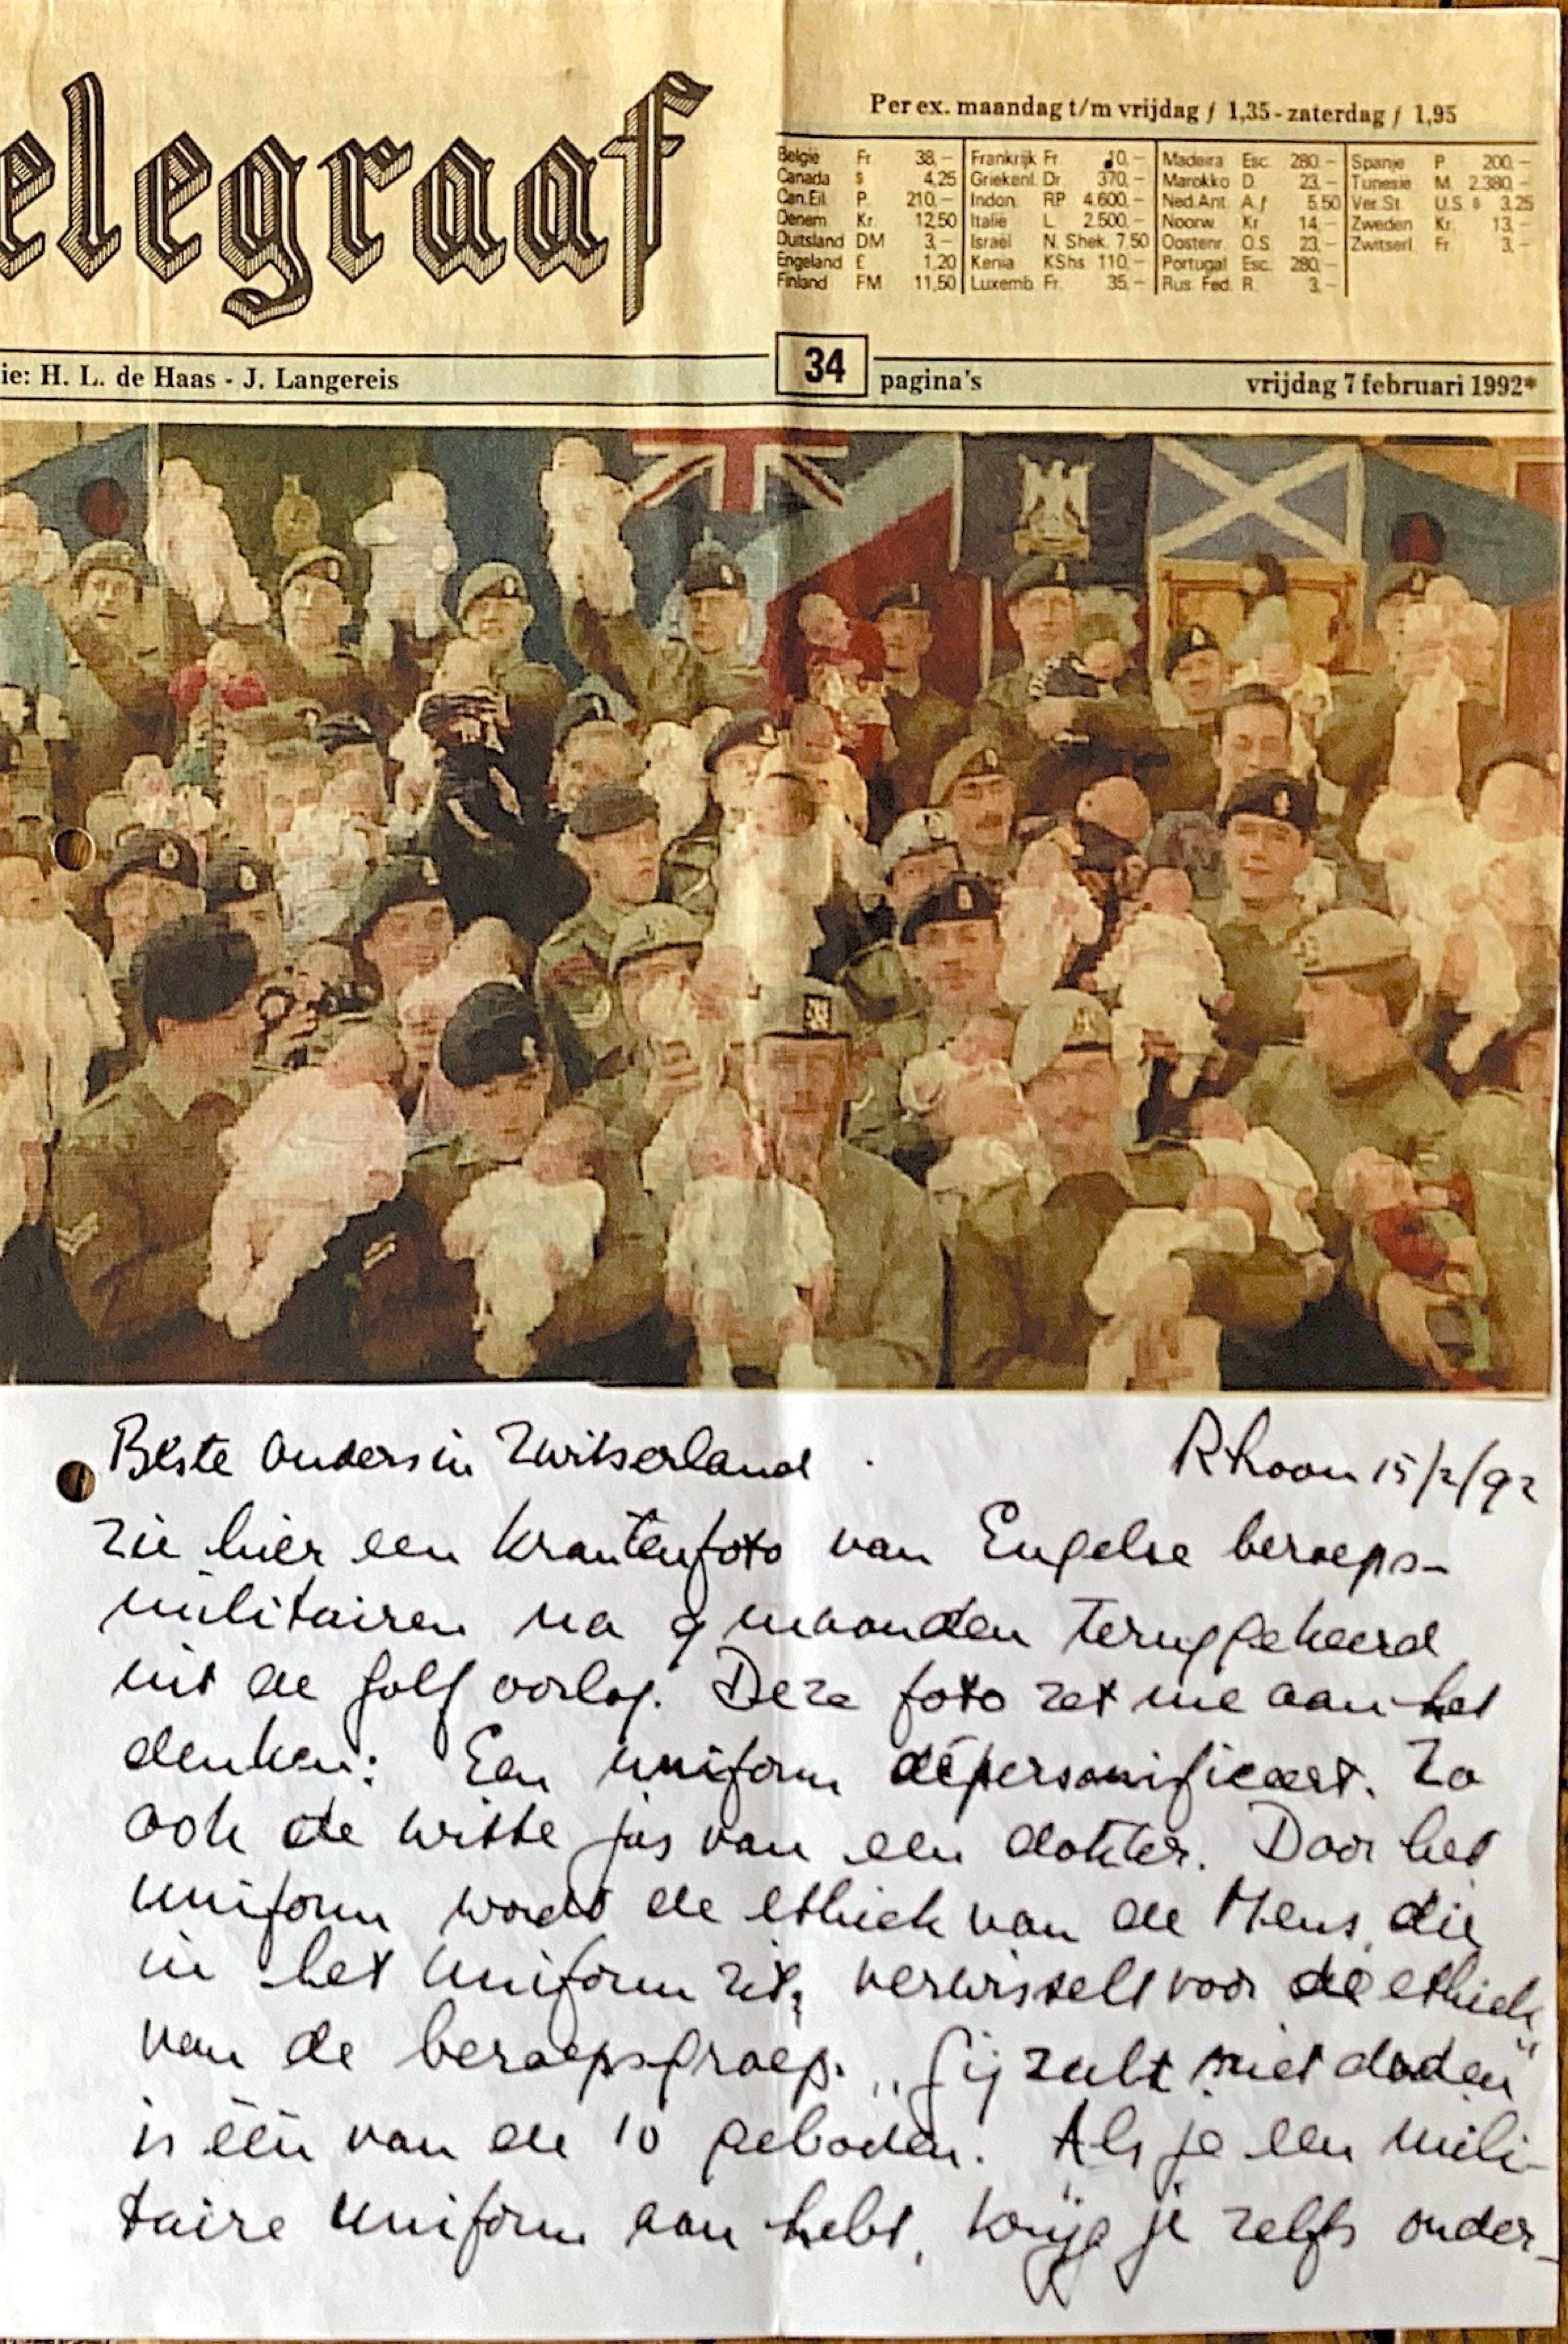 elegraaf
Per ex. maandag t/m vrijdag ƒ 1,35 - zaterdag ƒ 1,95
België Fr 38,- Frankrijk Fr. 10,- Madeira Esc. 280,- Spanje P. 200,-
Canada $ 4,25 Griekenl. Dr. 370,- Marokko D. 23,- Tunesië M. 2.380,-
Can.Eil. P. 210,- Indon. RP 4.600,- Ned.Ant. A.ƒ 5,50 Ver.St. U.S. $ 3,25
Denem. Kr. 12,50 Italië L. 2.500,- Noorw. Kr. 14,- Zweden Kr. 13,-
Duitsland DM 3,- Israël N. Shek. 7,50 Oostenr. O.S. 23,- Zwitserl. Fr. 3,-
Engeland £ 1,20 Kenia KShs. 110,- Portugal Esc. 280,-
Finland FM 11,50 Luxemb. Fr. 35,- Rus. Fed. R. 3,-
ie: H. L. de Haas - J. Langereis 34 pagina's vrijdag 7 februari 1992*
Beste Ouders in Zwitserland. Rhoon 15/2/92
Zie hier een krantenfoto van Engelse beroeps-
militairen na 9 maanden teruggekeerd
uit de golf oorlog. Deze foto zet me aan het
denken: Een uniform dépersonifieert. Zo
ook de witte jas van een dokter. Door het
uniform wordt de ethiek van de Mens, die
in het uniform zit, verwisselt voor de ethiek
van de beroepsgroep. „Gij zult niet doden"
is één van de 10 geboden. Als je een mili-
taire uniform aan hebt, krijg je zelfs onder-